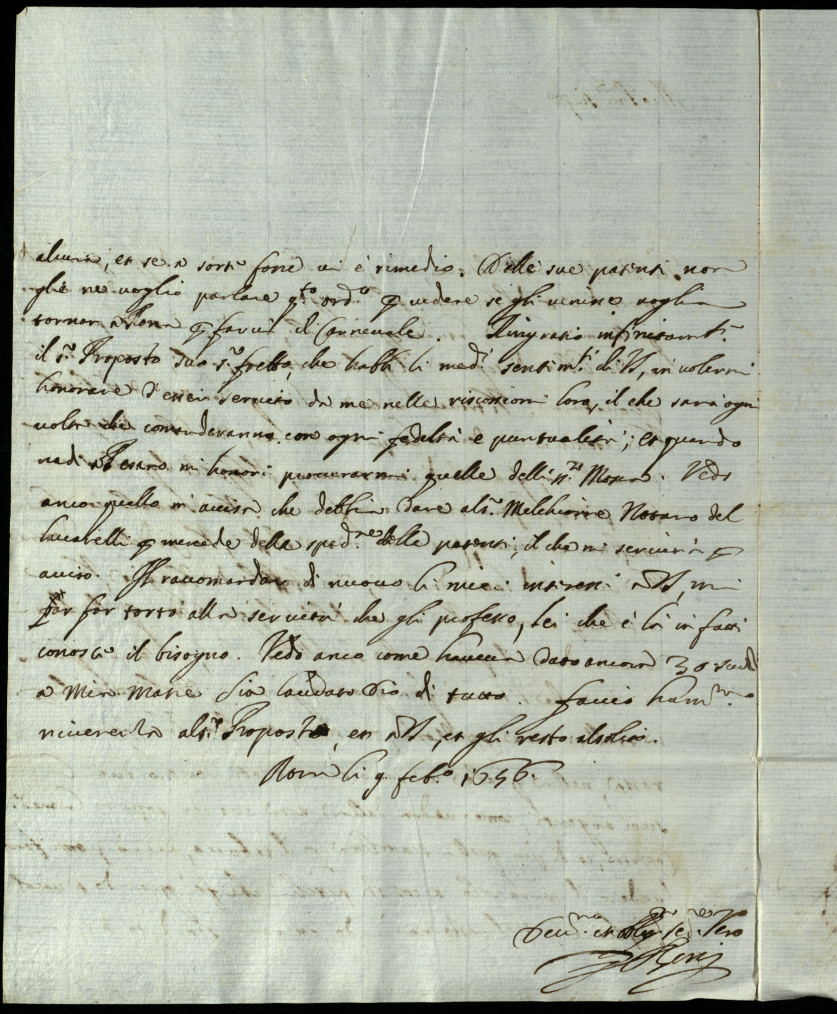 alcuna, et se a sorte forse vi è rimedio. Delle sue patenti non
gliè ne voglio parlare q.to ord.o p vedere se gli venisse voglia
tornar a Roma p farvi il Carnevale. Ringratio infinitam.te
il s.r Proposto suo s.r frello, che habbi li med.i sentim.ti di VS, in volermi
honorare d'esser servito da me nelle riscossioni loro, il che sarà ogni
volta che comanderanno con ogni fedeltà e puntualità; et quando
vadi a Pesaro mi honori procurarmi quelle delli ss.ri Mosca. Vedo
anco quello m'avisa che debbia dare al s.r Melchiorre Notaro del
Lucatelli p mercede della sped.ne delle patenti, il che mi servirà p
aviso. Il racomandare di nuovo li miei interessi a VS, mi
par far torto alla servitù che gli professo, lei che è là in fatti
conosce il bisogno. Vedo anco come haveva dato ancora 30 scudi
a mia Matre sia laudato Dio di tutto. faccio hum.ma
riverenza al s.r Proposto, et a VS, et gli resto al solito.
Roma li 9 feb.o 1656.
Dev.mo et obblig.mo se.re vero